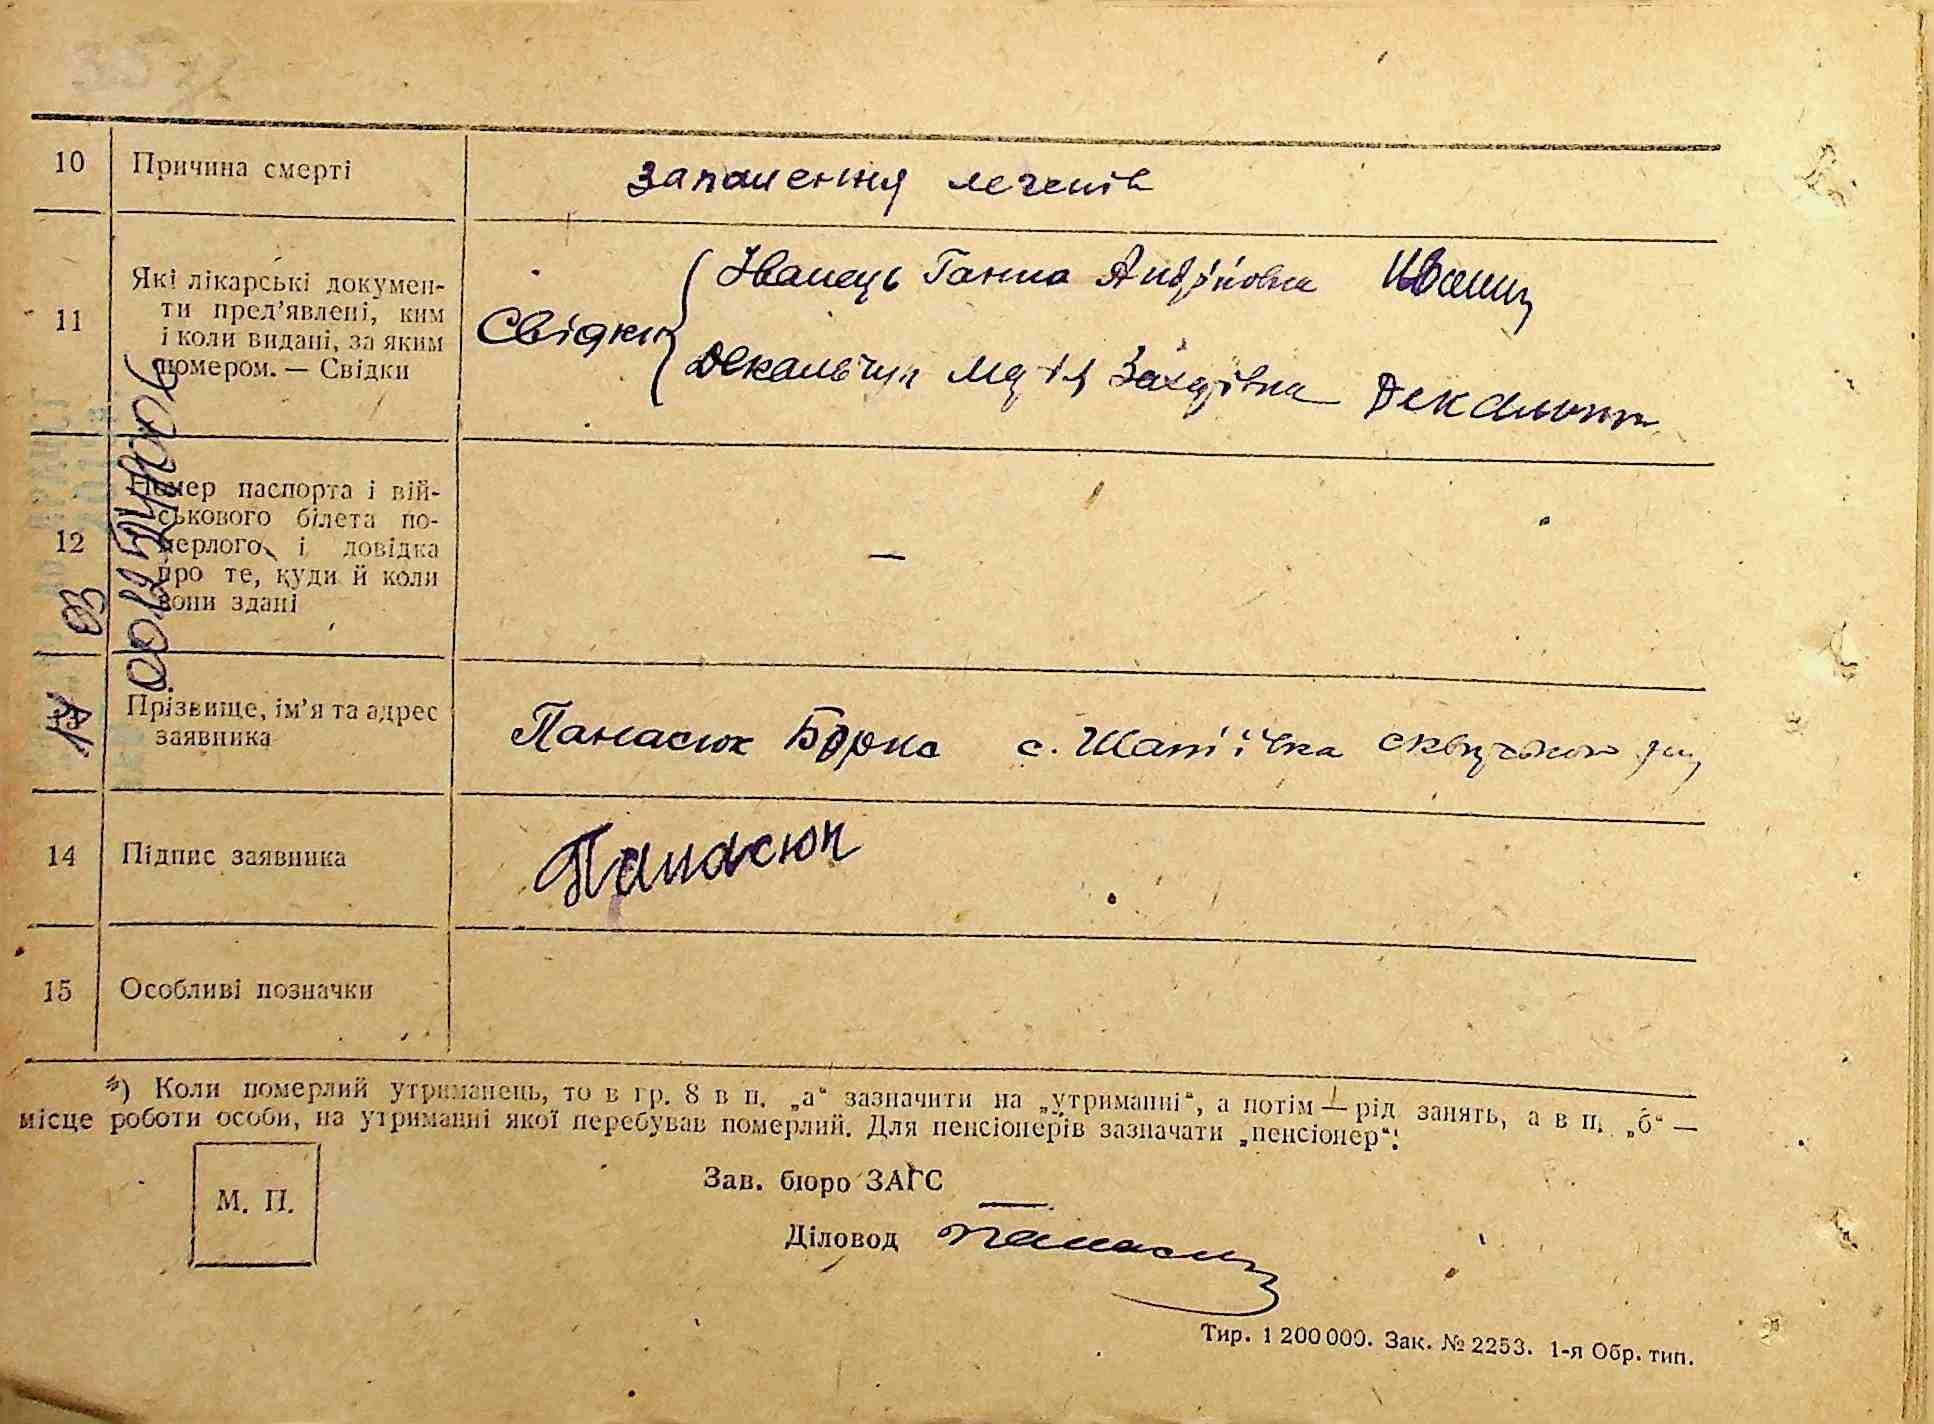 10 Причина смерті запалення легенів
11 Які лікарські докумен-
ти пред’явлені, ким
і коли видані, за яким
номером. — Свідки
Свідки
Іванець Ганна Андріївна
Захарівна
12 Номер паспорта і вій-
ськового білета по-
мерлого і довідка
про те, куди й коли
вони здані
—
Прізвище, ім’я та адрес
заявника
Панасюк с. Шапіївка сквирського
14 Підпис заявника Панасюк
15 Особливі позначки
*) Коли померлий утриманець, то в гр. 8 в п. „а“ зазначити на „утриманні“, а потім — рід занять, а в п. „б“ —
місце роботи особи, на утриманні якої перебував померлий. Для пенсіонерів зазначати „пенсіонер“.
М. П.
Зав. бюро ЗАГС —
Діловод
Тир. 1 200 000. Зак. № 2253. 1-я Обр. тип.